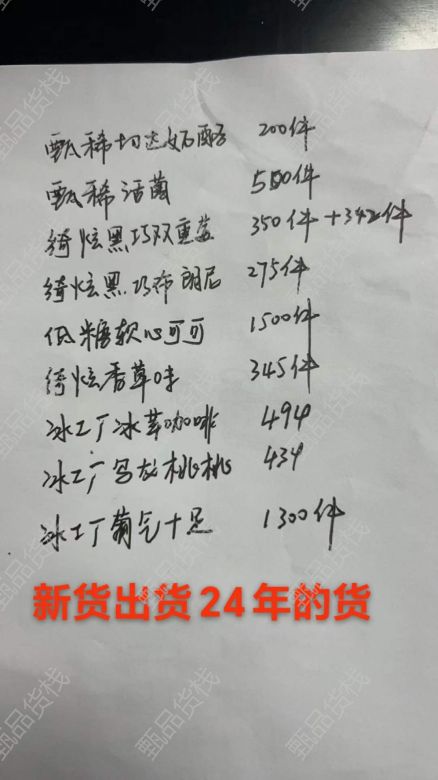 甄稀切达奶酪 200件
甄稀活菌 500件
绮炫黑巧双重莓 350件+342件
绮炫黑巧布朗尼 275件
低糖软心可可 1500件
绮炫香草味 345件
冰工厂冰萃咖啡 494
冰工厂乌龙桃桃 434
冰工厂葡气十足 1300件
新货出货24年的货
甄品货栈